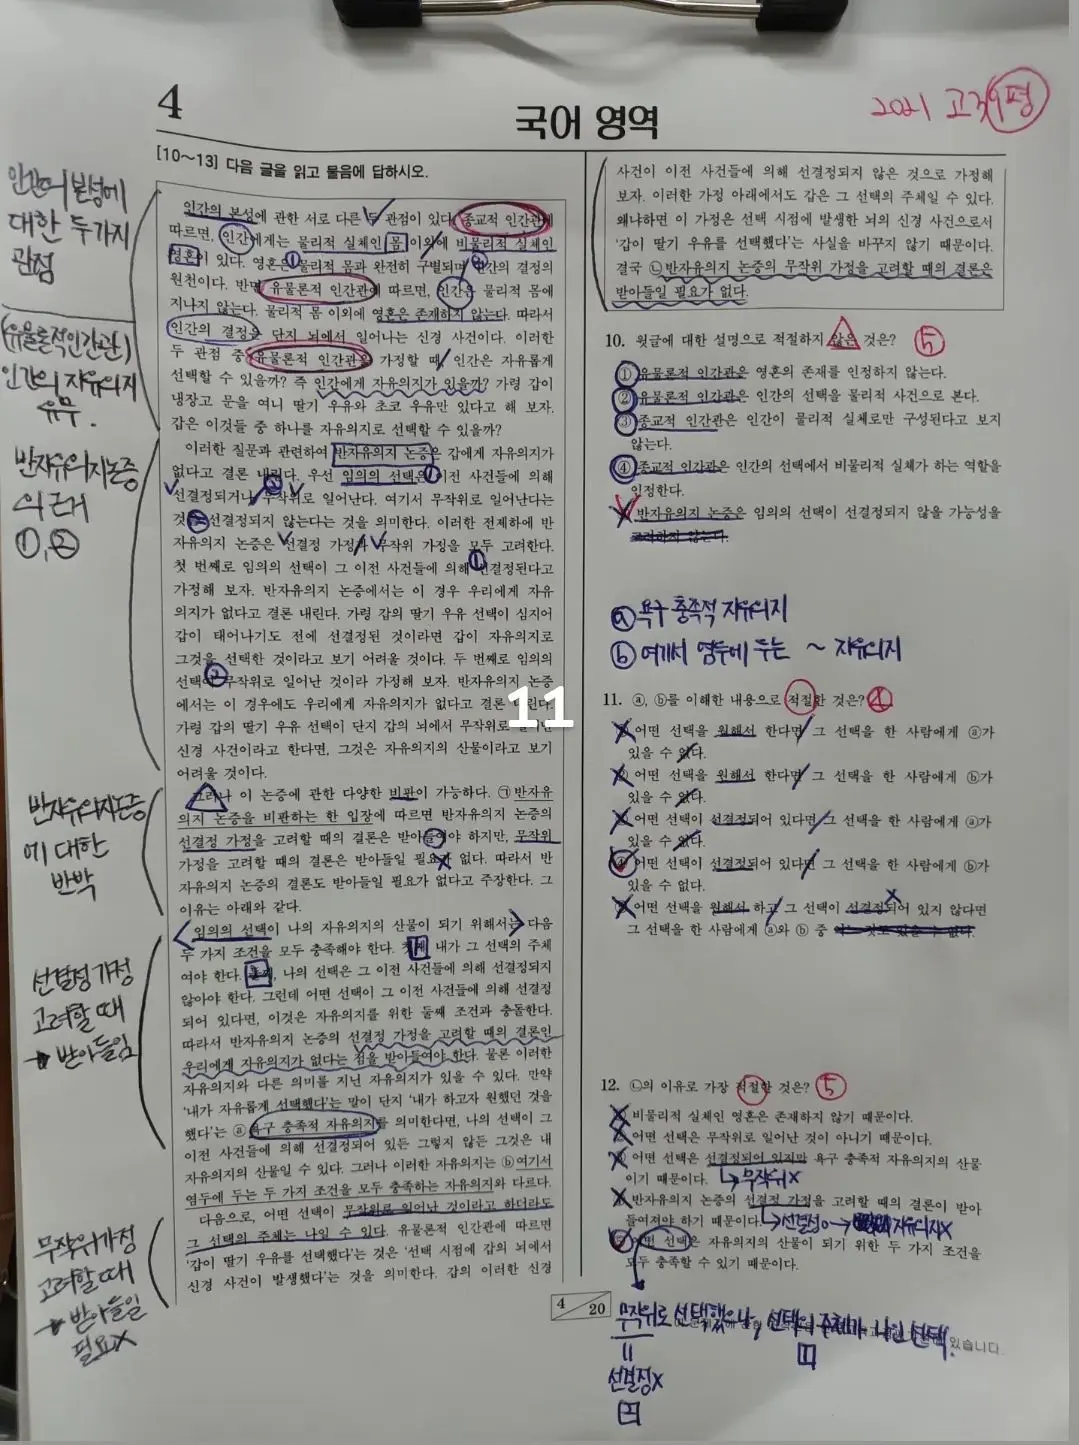 4
국어 영역
2021 고3 9평
[10~13] 다음 글을 읽고 물음에 답하시오.
인간의 본성에
대한 두가지
관점
(유물론적인간관)
인간의 자유의지
유무.
반자유의지논증
의 근거
①, ②
반자유의지논증
에 대한
반박
선결정 가정
고려할 때
→ 받아들임
무작위가정
고려할 때
→ 받아들일
필요X
인간의 본성에 관한 서로 다른 두 관점이 있다. 종교적 인간관에
따르면, 인간에게는 물리적 실체인 몸 이외에 비물리적 실체인
영혼이 있다. 영혼은 물리적 몸과 완전히 구별되며 인간의 결정의
원천이다. 반면 유물론적 인간관에 따르면, 인간은 물리적 몸에
지나지 않는다. 물리적 몸 이외에 영혼은 존재하지 않는다. 따라서
인간의 결정은 단지 뇌에서 일어나는 신경 사건이다. 이러한
두 관점 중 유물론적 인간관을 가정할 때, 인간은 자유롭게
선택할 수 있을까? 즉 인간에게 자유의지가 있을까? 가령 갑이
냉장고 문을 여니 딸기 우유와 초코 우유만 있다고 해 보자.
갑은 이것들 중 하나를 자유의지로 선택할 수 있을까?
이러한 질문과 관련하여 반자유의지 논증은 갑에게 자유의지가
없다고 결론 내린다. 우선 임의의 선택은 이전 사건들에 의해
선결정되거나 무작위로 일어난다. 여기서 무작위로 일어난다는
것은 선결정되지 않는다는 것을 의미한다. 이러한 전제하에 반
자유의지 논증은 선결정 가정과 무작위 가정을 모두 고려한다.
첫 번째로 임의의 선택이 그 이전 사건들에 의해 선결정된다고
가정해 보자. 반자유의지 논증에서는 이 경우 우리에게 자유
의지가 없다고 결론 내린다. 가령 갑의 딸기 우유 선택이 심지어
갑이 태어나기도 전에 선결정된 것이라면 갑이 자유의지로
그것을 선택한 것이라고 보기 어려울 것이다. 두 번째로 임의의
선택이 무작위로 일어난 것이라 가정해 보자. 반자유의지 논증
에서는 이 경우에도 우리에게 자유의지가 없다고 결론 내린다.
가령 갑의 딸기 우유 선택이 단지 갑의 뇌에서 무작위로 일어난
신경 사건이라고 한다면, 그것은 자유의지의 산물이라고 보기
어려울 것이다.
11
그러나 이 논증에 관한 다양한 비판이 가능하다. ㉠반자유
의지 논증을 비판하는 한 입장에 따르면 반자유의지 논증의
선결정 가정을 고려할 때의 결론은 받아들여야 하지만, 무작위
가정을 고려할 때의 결론은 받아들일 필요가 없다. 따라서 반
자유의지 논증의 결론도 받아들일 필요가 없다고 주장한다. 그
이유는 아래와 같다.
임의의 선택이 나의 자유의지의 산물이 되기 위해서는 다음
두 가지 조건을 모두 충족해야 한다. 첫째, 내가 그 선택의 주체
여야 한다. 둘째, 나의 선택은 그 이전 사건들에 의해 선결정되지
않아야 한다. 그런데 어떤 선택이 그 이전 사건들에 의해 선결정
되어 있다면, 이것은 자유의지를 위한 둘째 조건과 충돌한다.
따라서 반자유의지 논증의 선결정 가정을 고려할 때의 결론인
우리에게 자유의지가 없다는 점을 받아들여야 한다. 물론 이러한
자유의지와 다른 의미를 지닌 자유의지가 있을 수 있다. 만약
'내가 자유롭게 선택했다'는 말이 단지 '내가 하고자 원했던 것을
했다'는 ⓐ욕구 충족적 자유의지를 의미한다면, 나의 선택이 그
이전 사건들에 의해 선결정되어 있든 그렇지 않든 그것은 내
자유의지의 산물일 수 있다. 그러나 이러한 자유의지는 ⓑ여기서
염두에 두는 두 가지 조건을 모두 충족하는 자유의지와 다르다.
다음으로, 어떤 선택이 무작위로 일어난 것이라고 하더라도
그 선택의 주체는 나일 수 있다. 유물론적 인간관에 따르면
'갑이 딸기 우유를 선택했다'는 것은 '선택 시점에 갑의 뇌에서
신경 사건이 발생했다'는 것을 의미한다. 갑의 이러한 신경
사건이 이전 사건들에 의해 선결정되지 않은 것으로 가정해
보자. 이러한 가정 아래에서도 갑은 그 선택의 주체일 수 있다.
왜냐하면 이 가정은 선택 시점에 발생한 뇌의 신경 사건으로서
'갑이 딸기 우유를 선택했다'는 사실을 바꾸지 않기 때문이다.
결국 ㉡반자유의지 논증의 무작위 가정을 고려할 때의 결론은
받아들일 필요가 없다.
10. 윗글에 대한 설명으로 적절하지 않은 것은? ⑤
① 유물론적 인간관은 영혼의 존재를 인정하지 않는다.
② 유물론적 인간관은 인간의 선택을 물리적 사건으로 본다.
③ 종교적 인간관은 인간이 물리적 실체로만 구성된다고 보지
않는다.
④ 종교적 인간관은 인간의 선택에서 비물리적 실체가 하는 역할을
인정한다.
⑤ 반자유의지 논증은 임의의 선택이 선결정되지 않을 가능성을
고려하지 않는다.
ⓐ 욕구 충족적 자유의지
ⓑ 여기서 염두에 두는 ~ 자유의지
11. ⓐ, ⓑ를 이해한 내용으로 적절한 것은? ④
① 어떤 선택을 원해서 한다면 그 선택을 한 사람에게 ⓐ가
있을 수 없다.
② 어떤 선택을 원해서 한다면 그 선택을 한 사람에게 ⓑ가
있을 수 없다.
③ 어떤 선택이 선결정되어 있다면 그 선택을 한 사람에게 ⓐ가
있을 수 없다.
④ 어떤 선택이 선결정되어 있다면 그 선택을 한 사람에게 ⓑ가
있을 수 없다.
⑤ 어떤 선택을 원해서 하고 그 선택이 선결정되어 있지 않다면
그 선택을 한 사람에게 ⓐ와 ⓑ 중 어느 것도 있을 수 없다.
12. ㉡의 이유로 가장 적절한 것은? ⑤
① 비물리적 실체인 영혼은 존재하지 않기 때문이다.
② 어떤 선택은 무작위로 일어난 것이 아니기 때문이다.
③ 어떤 선택은 선결정되어 있지만 욕구 충족적 자유의지의 산물
이기 때문이다. ↳ 무작위X
④ 반자유의지 논증의 선결정 가정을 고려할 때의 결론이 받아
들여져야 하기 때문이다. ↳ 선결정O → 자유의지X
⑤ 어떤 선택은 자유의지의 산물이 되기 위한 두 가지 조건을
모두 충족할 수 있기 때문이다.
4 20
무작위로 선택했으나, 선택의 주체가 나인 선택.
있습니다.
=
1
선결정X
2